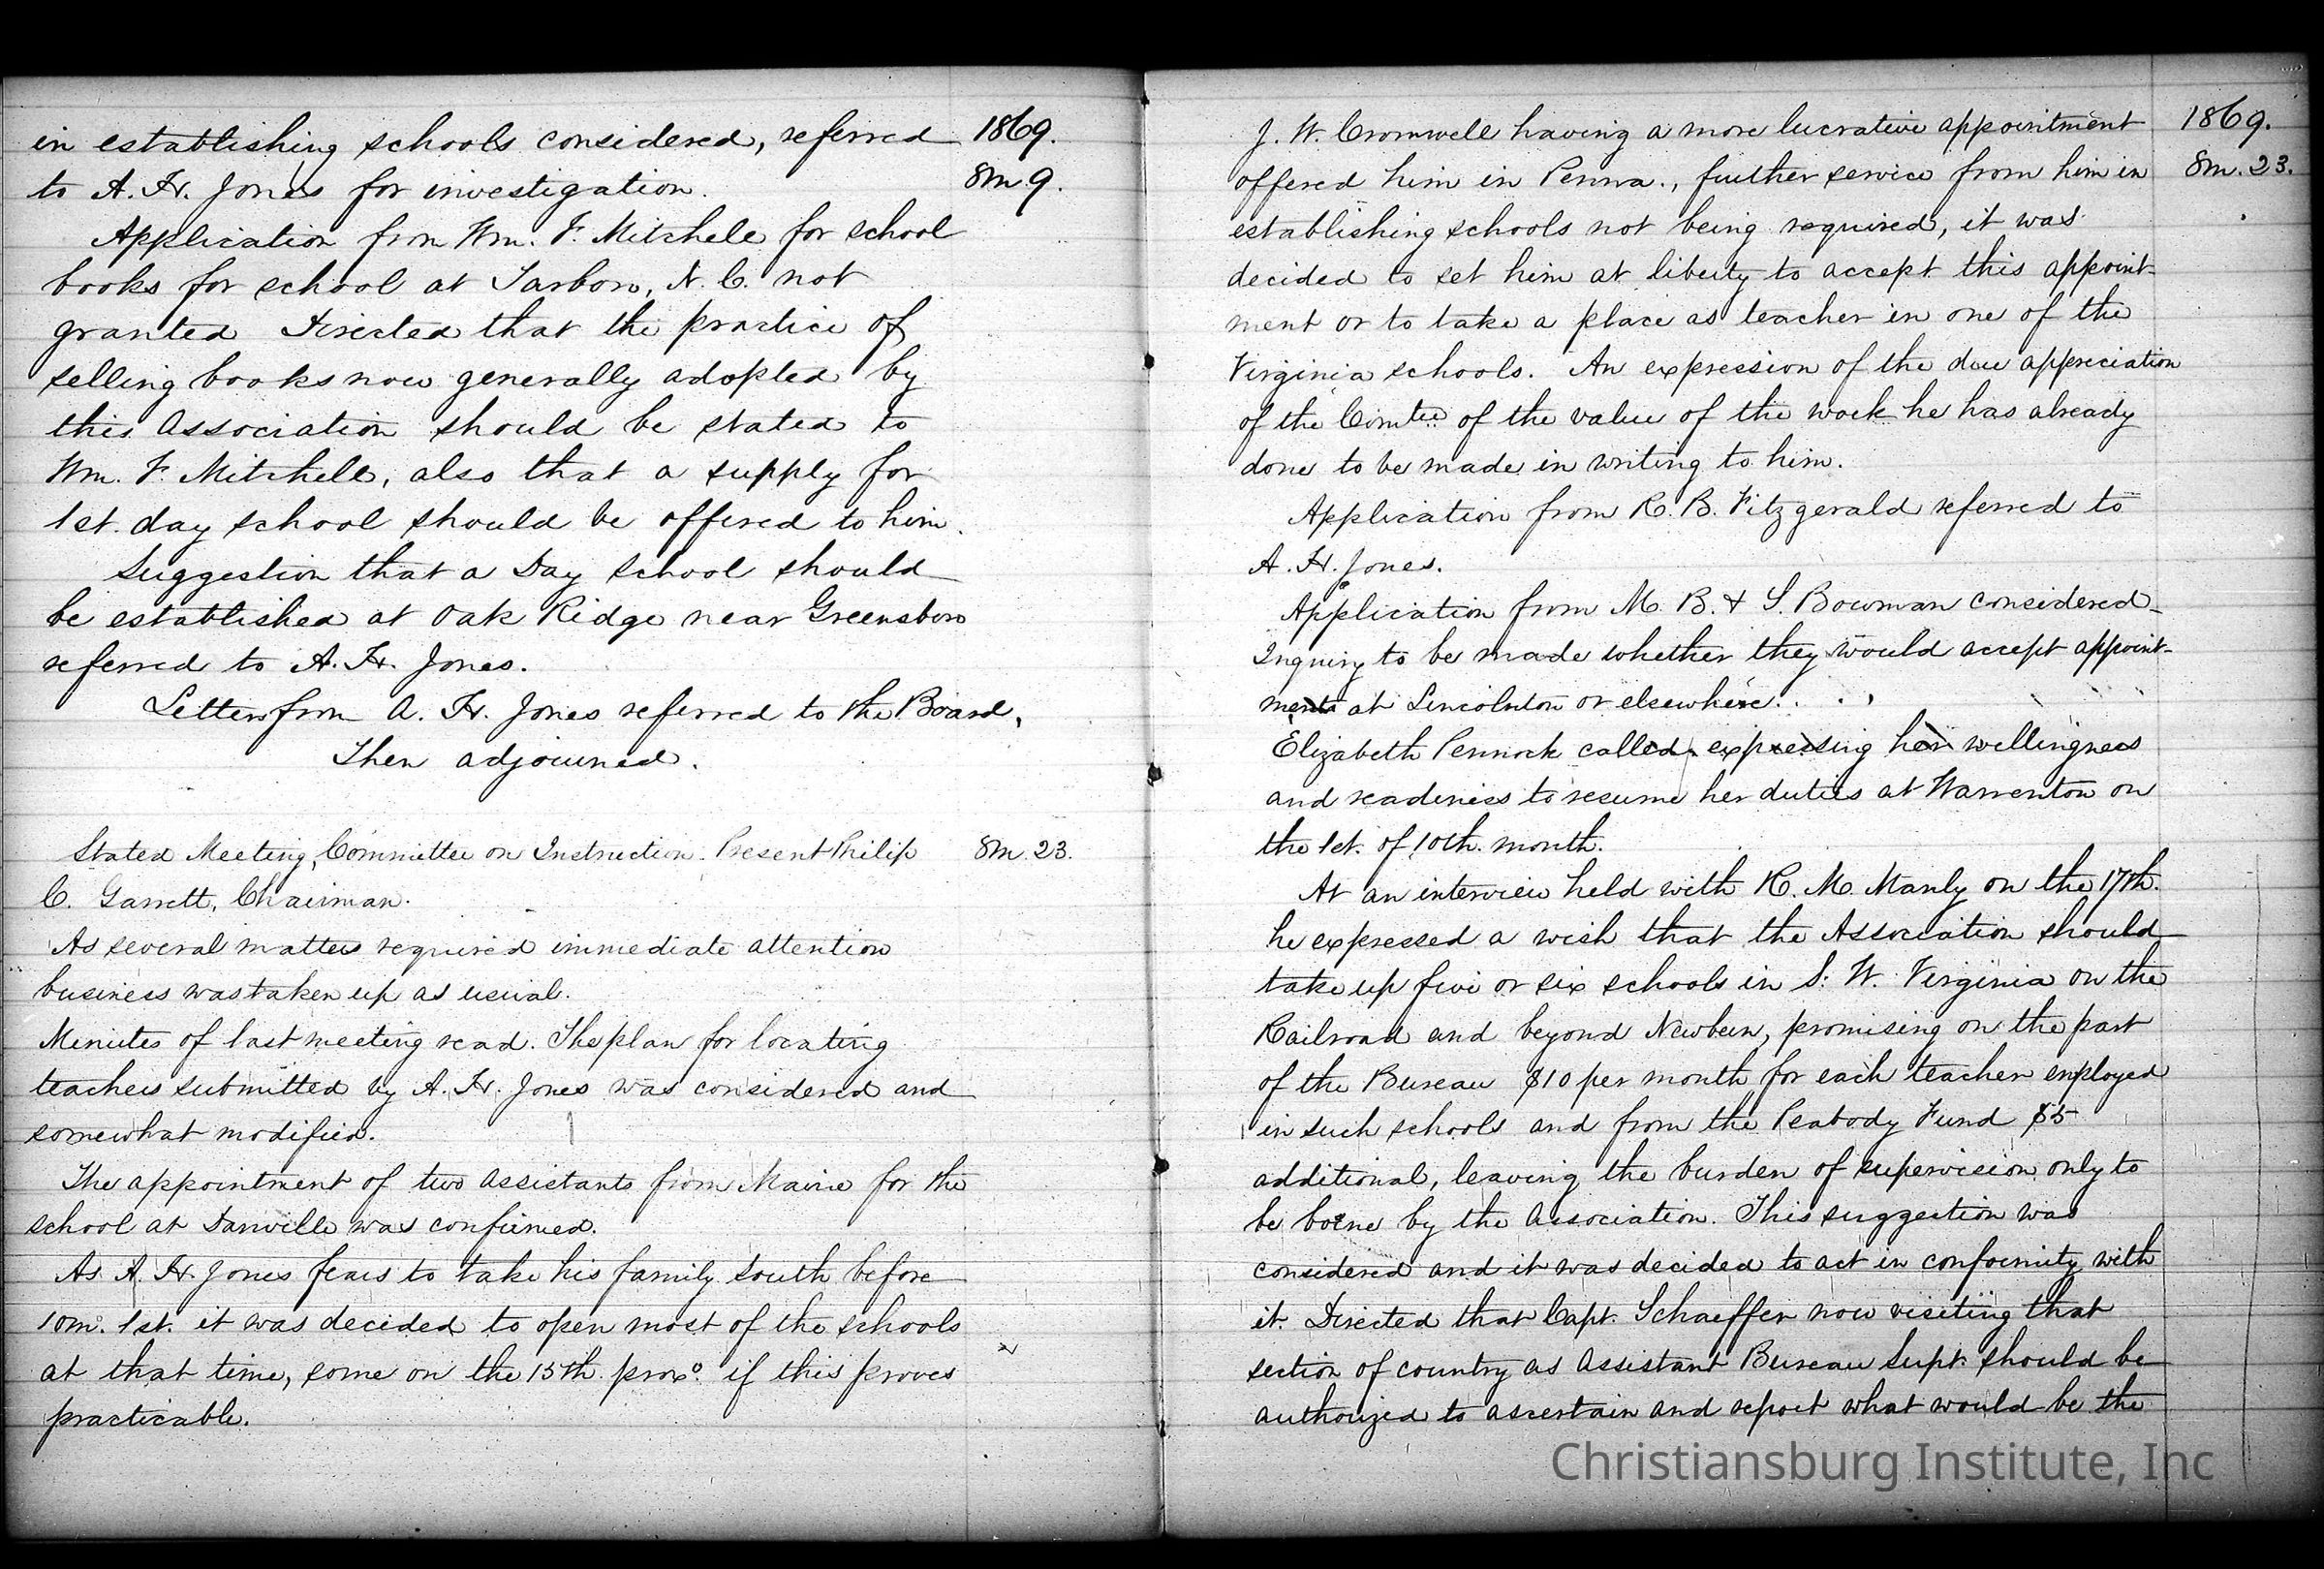 in establishing schools considered, referred 1869.
to A. H. Jones for investigation. 8m 9.
Application from Wm. F. Mitchell for school
books for school at Tarboro, N. C. not
granted Directed that the practice of
selling books now generally adopted by
this Association should be stated to
Wm. F. Mitchell, also that a supply for
1st. day school should be offered to him.
Suggestion that a Day School should
be established at Oak Ridge near Greensboro
referred to A. H. Jones.
Letters from A. H. Jones referred to the Board,
Then adjourned.
Stated Meeting, Committee on Instruction. Present Philip 8m. 23.
C. Garrett, Chairman.
As several matters required immediate attention
business was taken up as usual.
Minutes of last meeting read. The plan for locating
teachers submitted by A. H. Jones was considered and
somewhat modified.
The appointment of two assistants from Maine for the
school at Danville was confirmed.
As A. H. Jones fears to take his family South before
10m. 1st. it was decided to open most of the schools
at that time, some on the 15th. proxo. if this proves
practicable.
J. W. Cromwell having a more lucrative appointment 1869.
offered him in Penna., further service from him in 8m. 23.
establishing schools not being required, it was
decided to set him at liberty to accept this appoint-
ment or to take a place as teacher in one of the
Virginia schools. An expression of the due appreciation
of the Comtee. of the value of the work he has already
done to be made in writing to him.
Application from R. B. Fitzgerald referred to
A. H. Jones.
Application from M. B. & S. Bowman considered-
Inquiry to be made whether they would accept appoint-
ments at Lincolnton or elsewhere.
Elizabeth Pennock called, expressing her willingness
and readiness to resume her duties at Warrenton on
the 1st. of 10th. month.
At an interview held with R. M. Manly on the 17th.
he expressed a wish that the Association should
take up five or six schools in S. W. Virginia on the
Railroad and beyond Newbern, promising on the part
of the Bureau $10 per month for each teacher employed
in such schools and from the Peabody Fund $5
additional, leaving the burden of supervision only to
be borne by the Association. This suggestion was
considered and it was decided to act in conformity with
it. Directed that Capt. Schaeffer now visiting that
section of country as Assistant Bureau Supt. should be
authorized to ascertain and report what would be the
Christiansburg Institute, Inc